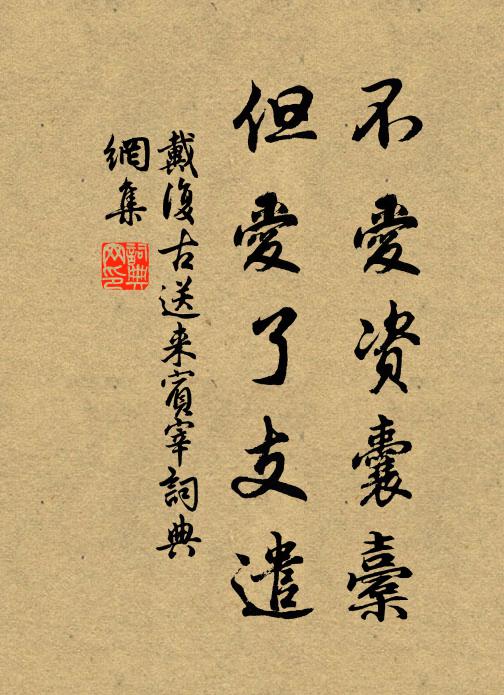 不愛资囊橐
但愛了支遣
戴復古送来賓宰詞典
網集
詞典
网印